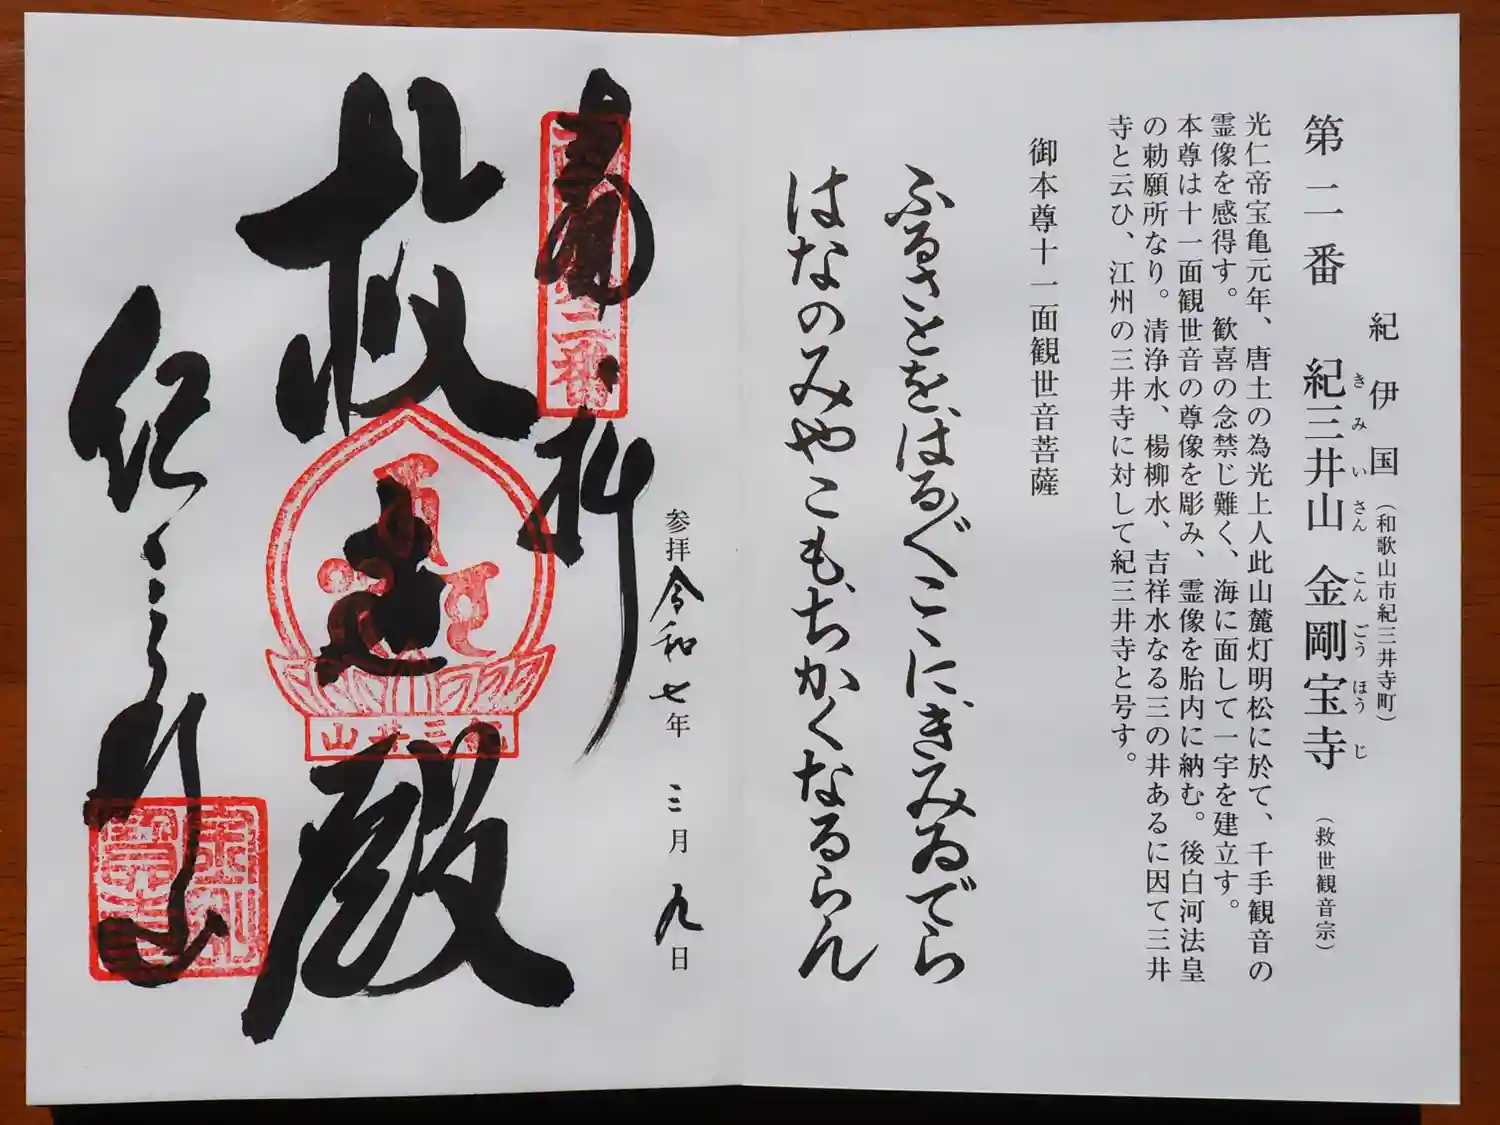 紀伊国（和歌山市紀三井寺町）
第二番 紀三井山 金剛宝寺（救世観音宗）
きみいさん こんごうほうじ
光仁帝宝亀元年、唐土の為光上人此山麓灯明松に於て、千手観音の
霊像を感得す。歓喜の念禁じ難く、海に面して一宇を建立す。
本尊は十一面観世音の尊像を彫み、霊像を胎内に納む。後白河法皇
の勅願所なり。清浄水、楊柳水、吉祥水なる三の井あるに因て三井
寺と云ひ、江州の三井寺に対して紀三井寺と号す。
御本尊十一面観世音菩薩
ふるさとを、はるぐここに、きみゐでら
はなのみやこも、ちかくなるらん
参拝令和七年 三月 九日
奉拝
救世殿
紀三井山
紀三井寺